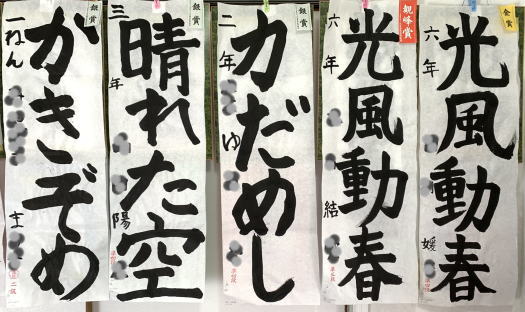 金賞
光風動春
六年
媛
観峰賞
光風動春
六年
結
銀賞
力だめし
二年
ゆ
銀賞
晴れた空
三年
陽
銀賞
かきぞめ
一ねん
ま
二段